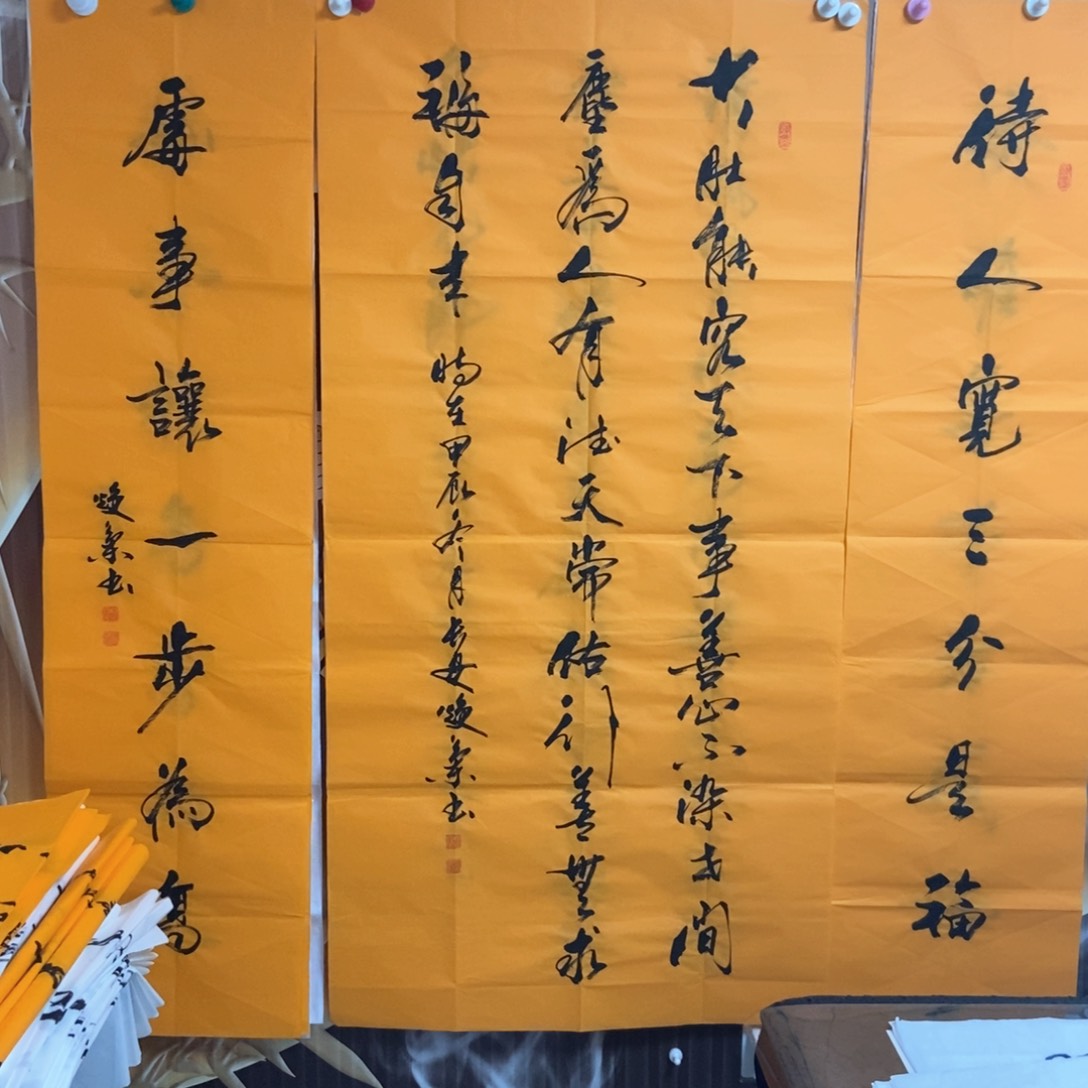 待人寬三分是福
大肚能容天下事善心不染世間
塵為人有德天常佑行善無求
福自來
時在甲辰冬月長安煥集書
處事讓一步為高
煥集書